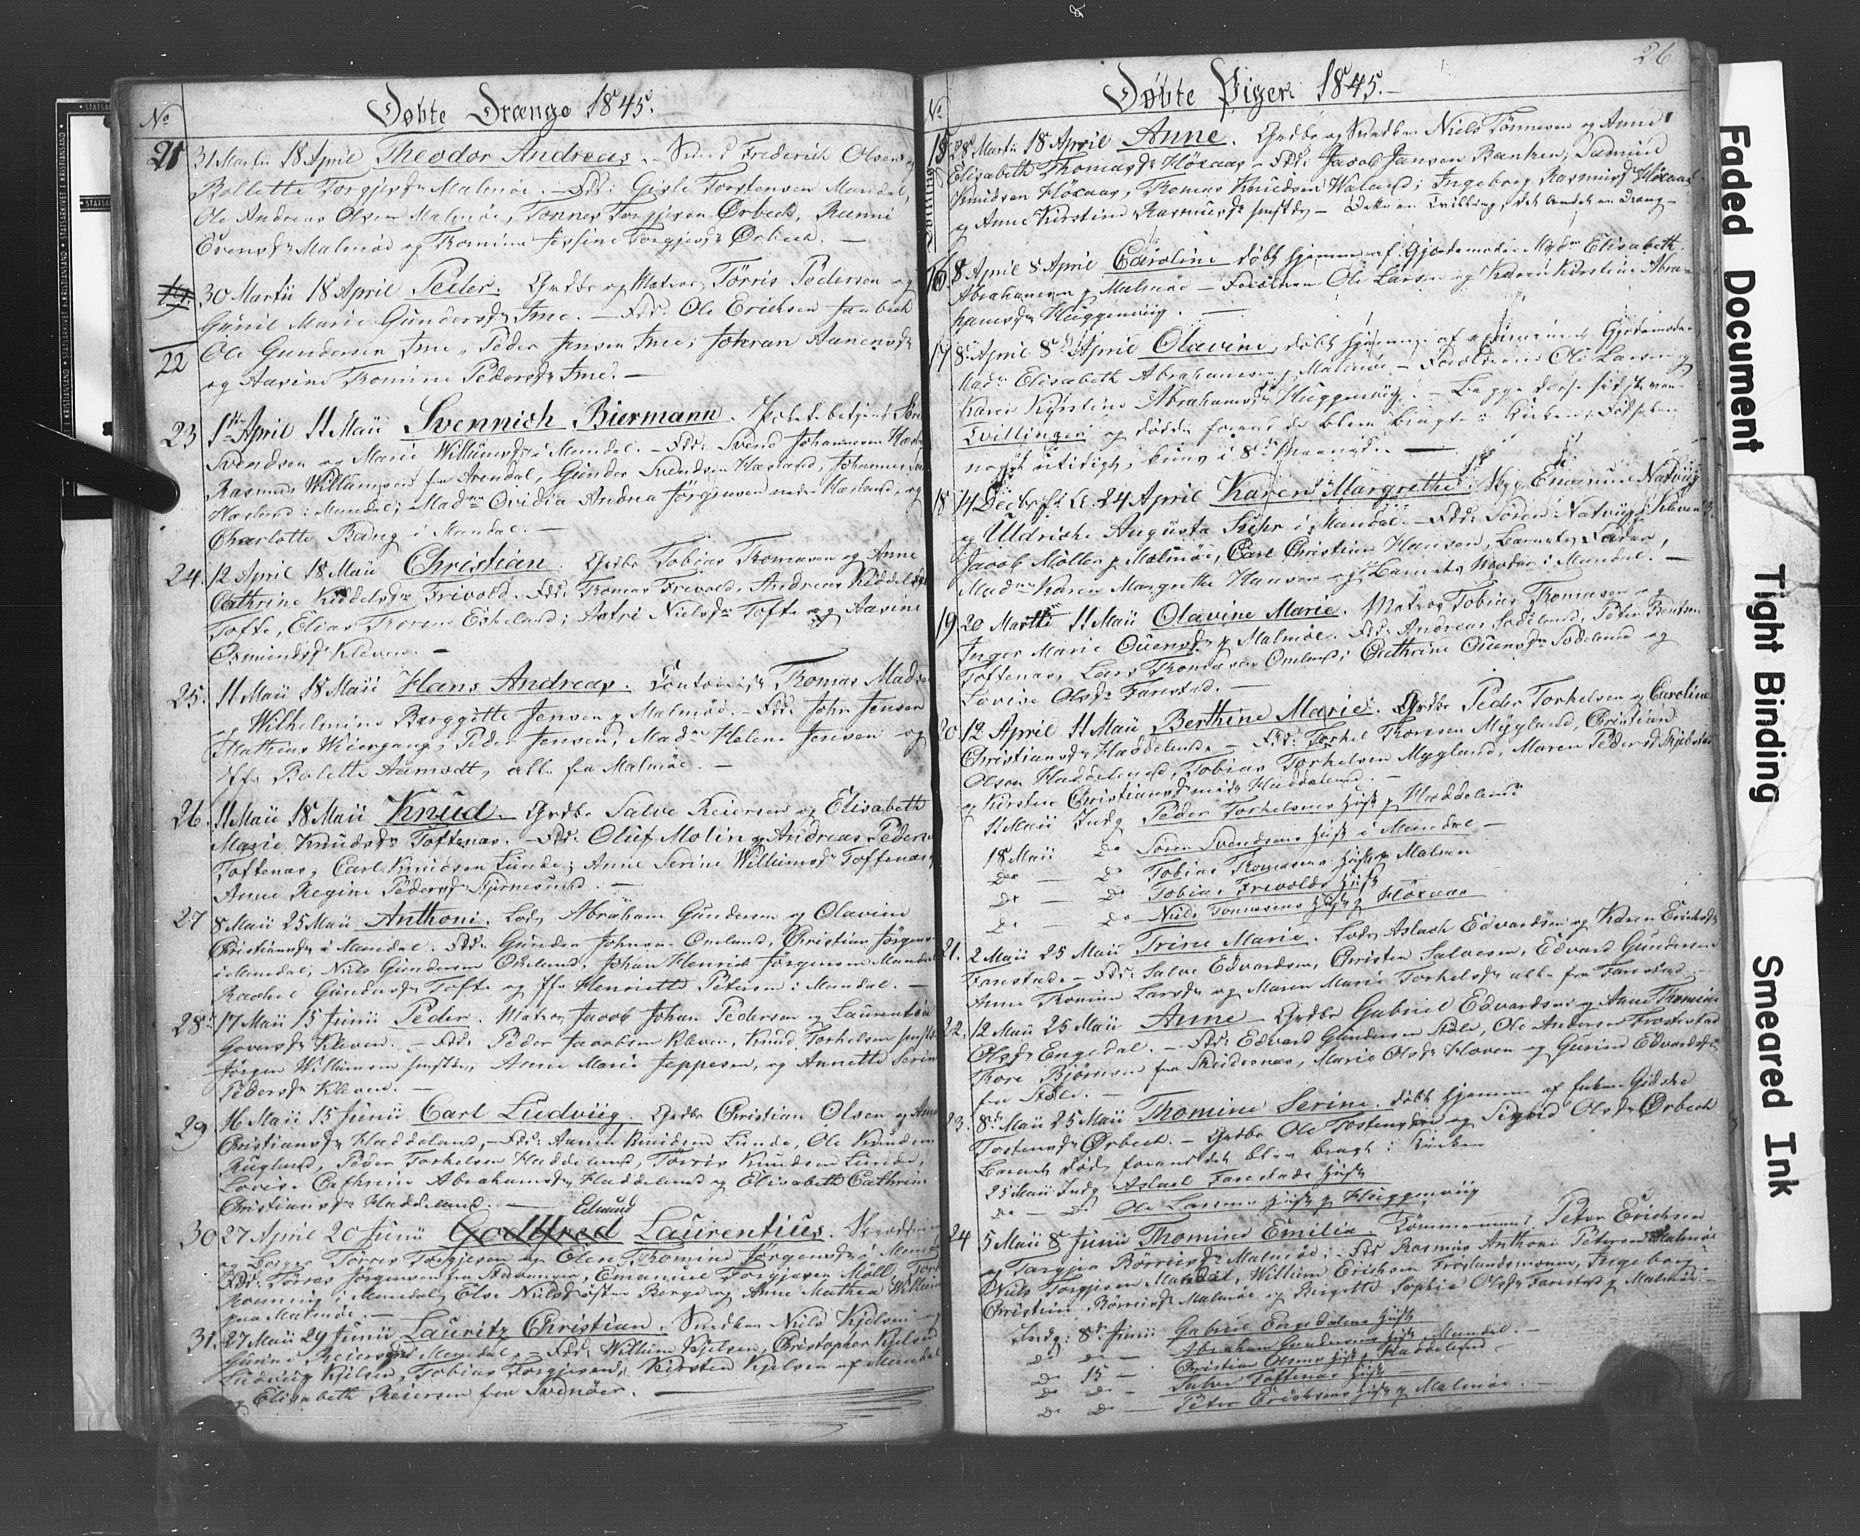 Døbte Drenge 1845.
No
21 31 Martii 18 April Theodor Andreas. Frederik Olsen
Bollette Torgjersdr Malmøe. — Fdr: Gisle Torstensen Mandal,
Ole Andreas Olsen Malmøe, Tønnes Torgjersen Ørbeck,
Evensdr Malmøe og Thomine Torgjersdr Ørbeck. —
19 30 Martii 18 April Peder. Grdbr og Matros Tørris Pedersen og
Gunil Marie Gundersdr Ime. — Fdr: Ole Erichsen
22 Ole Gundersen Ime, Peder Jensen Ime; Aanensdr
og Aasine Thomine Pedersdr Ime. —
23 1ste April 11 Maii Svennich Biermann. Søren
Svendsen og Marie Willumsdr i Mandal. — Fdr: Svend Johannesen
Rasmus Willumsen fra Arendal, Gunder Svendsen Hæsland, Johannes
Hæsland i Mandal; Madme Ovidia Andrea Jørgensen Hæsland, og
Charlotte Bang i Mandal. —
24. 12 April 18 Maii Christian. Grdbr Tobias Thomasen og Anne
Cathrine Kiddelsdr Frivold. Fdr: Thomas Frivold, Andreas
Tofte, Elias Eskeland; Astri Nielsdr Tofte og Aasine
Osmundsdr Kleven. —
25. 11 Maii 18 Maii Hans Andreas. Thomas
og Wilhelmine Berggitte Jensen p Malmøe. — Fdr: John Jensen
Mathias Weiergang, Peder Jensen, Madme Helene Jensen og
Jfr Bolette Aamodt, alle fra Malmøe. —
26. 11 Maii 18 Maii Knud. — Grdbr Salve Reiersen og Elisabeth
Marie Knudsdr Toftenæs. — Fdr: Oluf Molin og Andreas Peders
Toftenæs, Carl Knudsen Lunde; Anne Serine Willumsdr Toftenæs,
Anne Regine Pedersdr Hjernesund. —
27 8 Maii 25 Maii Anthoni. Lods Abraham Gundersen og Olavine
Christiansdr i Mandal. Fdr: Gunder Johnsen Omland, Christian Jørgens
i Mandal; Niels Gundersen Omland, Johan Henrich Jørgensen Mandal
Rachel Gundersdr Tofte og Jfr Henriette Petersen i Mandal. —
28. 17 Maii 15 Junii Peder. Matros Jacob Johan Pedersen og Laurentse
Goversdr Kleven. — Fdr: Peder Jacobsen Kleven, Knud Torkelsen
Jørgen Willumsen; Anne Marie Jeppesen, og Annette Serine
Pedersdr Kleven. —
29 16 Maii 15 Junii Carl Ludvig. Grdbr Christian Olsen og
Christiansdr Haddeland, — Fdr: Knudsen Lunde, Ole Knudsen
Kuglund, Peder Torkelsen Haddeland, Tørris Knudsen Lunde,
Lovise Cathrine Abrahamsdr Haddeland og Elisabeth Cathrine
Christiansdr Haddeland. — Edmund
30. 27 April 20 Junii Godtfred Laurentius.
og Borger Tørres Torgjersen og Elen Thomine Jørgensdr Mandal
Fdr: Tørres Jørgensen fra Stavanger, Emanuel Torgjersen Møll,
Rønning i Mandal, Else Berge og Anne Mathea
paa Malmøe. —
31. 27 Maii 29 Junii Lauritz Christian. Niels Kjelsen og
Gunne Reiersdr Mandal. — Fdr: Willum Kjelsen, Christopher Kjelsen
Ludvig Kjelsen, Tobias Torgjersen; Kirsten Kjelsen af Mandal
og Elisabeth Reiersen fra Svinøer. —
26
Døbte Piger 1845. —
No
15 28 Martii 18 April Anne. Grdbr og Niels Tønnesen og Anne
Elisabeth Thomasdr Høxaas. Fdr: Jacob Jansen Banken, Salmund
Knudsen Høxaas, Thomas Knudsen Waland; Ingeborg Rasmusdr Høxaas
og Anne Kirstine Rasmusdr — Dette en Tvilling, det andet en Dreng —
16 8 April 8 April Caroline døbt hjemme af Gjordemoder Madme Elisabeth
Abrahamsen p Malmøe — Forældrene Ole Larsen og Karen Kirstine Abra-
hamsdr Huggenviig. —
17 8de April 8de April Olavine, døbt hjemme af Gjordemoder
Madme Elisabeth Abrahamsen p Malmøe. — Forældrene Ole Larsen og
Karen Kirstine Abrahamsdr Huggenviig. — Begge disse sidste vare
Tvillinger og døde forend de blev bragte i Kirken, Fødselen
noget utidig, kuns i 8de Maaned. —
18 14 Decbr 24 April Karen Margrethe. Emanuel Natviig
og Uldricke Augusta Fuhr i Mandal. — Fdr: Natviig Kleven,
Jacob Møller p Malmøe, Carl Christian Hansen, Barnets Fader,
Madme Karen Margrethe Hansen og Barnets Moder i Mandal. —
19. 20 Martii 11 Maii Olavine Marie. Matros Tobias Thomasen og
Inger Marie Ouensdr p Malmøe. Fdr: Andreas Sodeland, Peter
Toftenæs, Lars Thomasen Omland; Cathrine Ouensdr Sodeland og
Lovise Olsdr Farestad. —
20 12 April 11 Maii Berthine Marie. Grdbr Peder Torkelsen og Caroline
Christiansdr Haddeland. — Fdr: Torkel Thorsen Mygland, Christian
Olsen Haddeland, Tobias Torkelsen Mygland, Maren Pedersdr
og Kirsten Christiansdr Haddeland. —
11 Maii Indg Peder Torkelsens Hust p Haddeland
18 Maii Do Søren Svendsens Hust i Mandal —
Do — Do Tobias Thomasens Hust p Malmøe
Do — Do Tobias Frivolds Hust
Do — Do Niels Tønnesens Hust p Høxaas
21. 2 Maii 25 Maii Trine Marie. Lods Aslach Edvardsen og Karen Ericsdr
Farestad. — Fdr: Salve Edvardsen, Christen Salvesen, Edvard Gundersen
Anne Thomine Larsdr og Maren Marie Torkelsdr alle fra Farestad —
22. 12 Maii 25 Maii Anne — Grdbr Gabriel Edvardsen og Anne Thomine
Olsdr Engedal. — Fdr: Edvard Gundersen Støle, Ole Andersen Frostestad
Tore Bjørnsen fra Skiernæs, Marie Olsdr Haven og Gurine Edvardsdr
fra Støle. —
23. 8de Maii 25 Maii Thomine Serine. døbt hjemme af Enken Gidske
Tostensdr Ørbeck. — Grdbr Ole Tostensen og Sigrid Olsdr Ørbeck
Barnet døde forend det blev bragt i Kirken
25 Maii Indg Aslach Farestads Hust
Do — Do Ole Larsens Hust p Huggenviig
24 5 Maii 8 Junii Thomine Emilia. Tømmermand Peter Erichsen
og Børresdr Malmøe. Fdr Rasmus Anthoni Petersen Malmøe
Niels Torgjersen Mandal, Willum Erichsen Froslandsmoen, Ingeborg
Christine Børresdr Malmøe og Birgitte Sophie Olsdr Farestad p Malmøe. —
Indg: 8de Junii Gabriel Engedals Hust
Do Do — Abraham Gundersens Hust Mandal. —
Do 15 — Christian Olsens Hust p Haddeland —
Do Do — Salve Toftenæs Hust
Do Do — Peter Erichsens Hust p Malmøe. —
Faded Document
Tight Binding
Smeared Ink